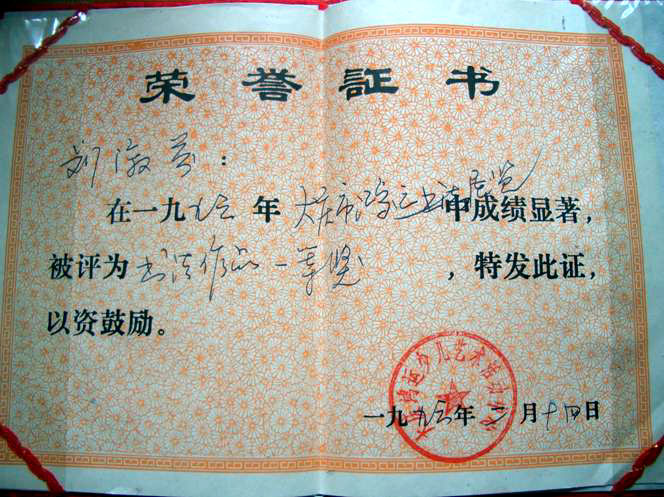 荣誉証书
刘
在一九九三年大庆市鸿运书法展览中成绩显著，
被评为书法作品一等奖，特发此证，
以资鼓励。
鸿运少儿艺术
一九九三年 月十四日